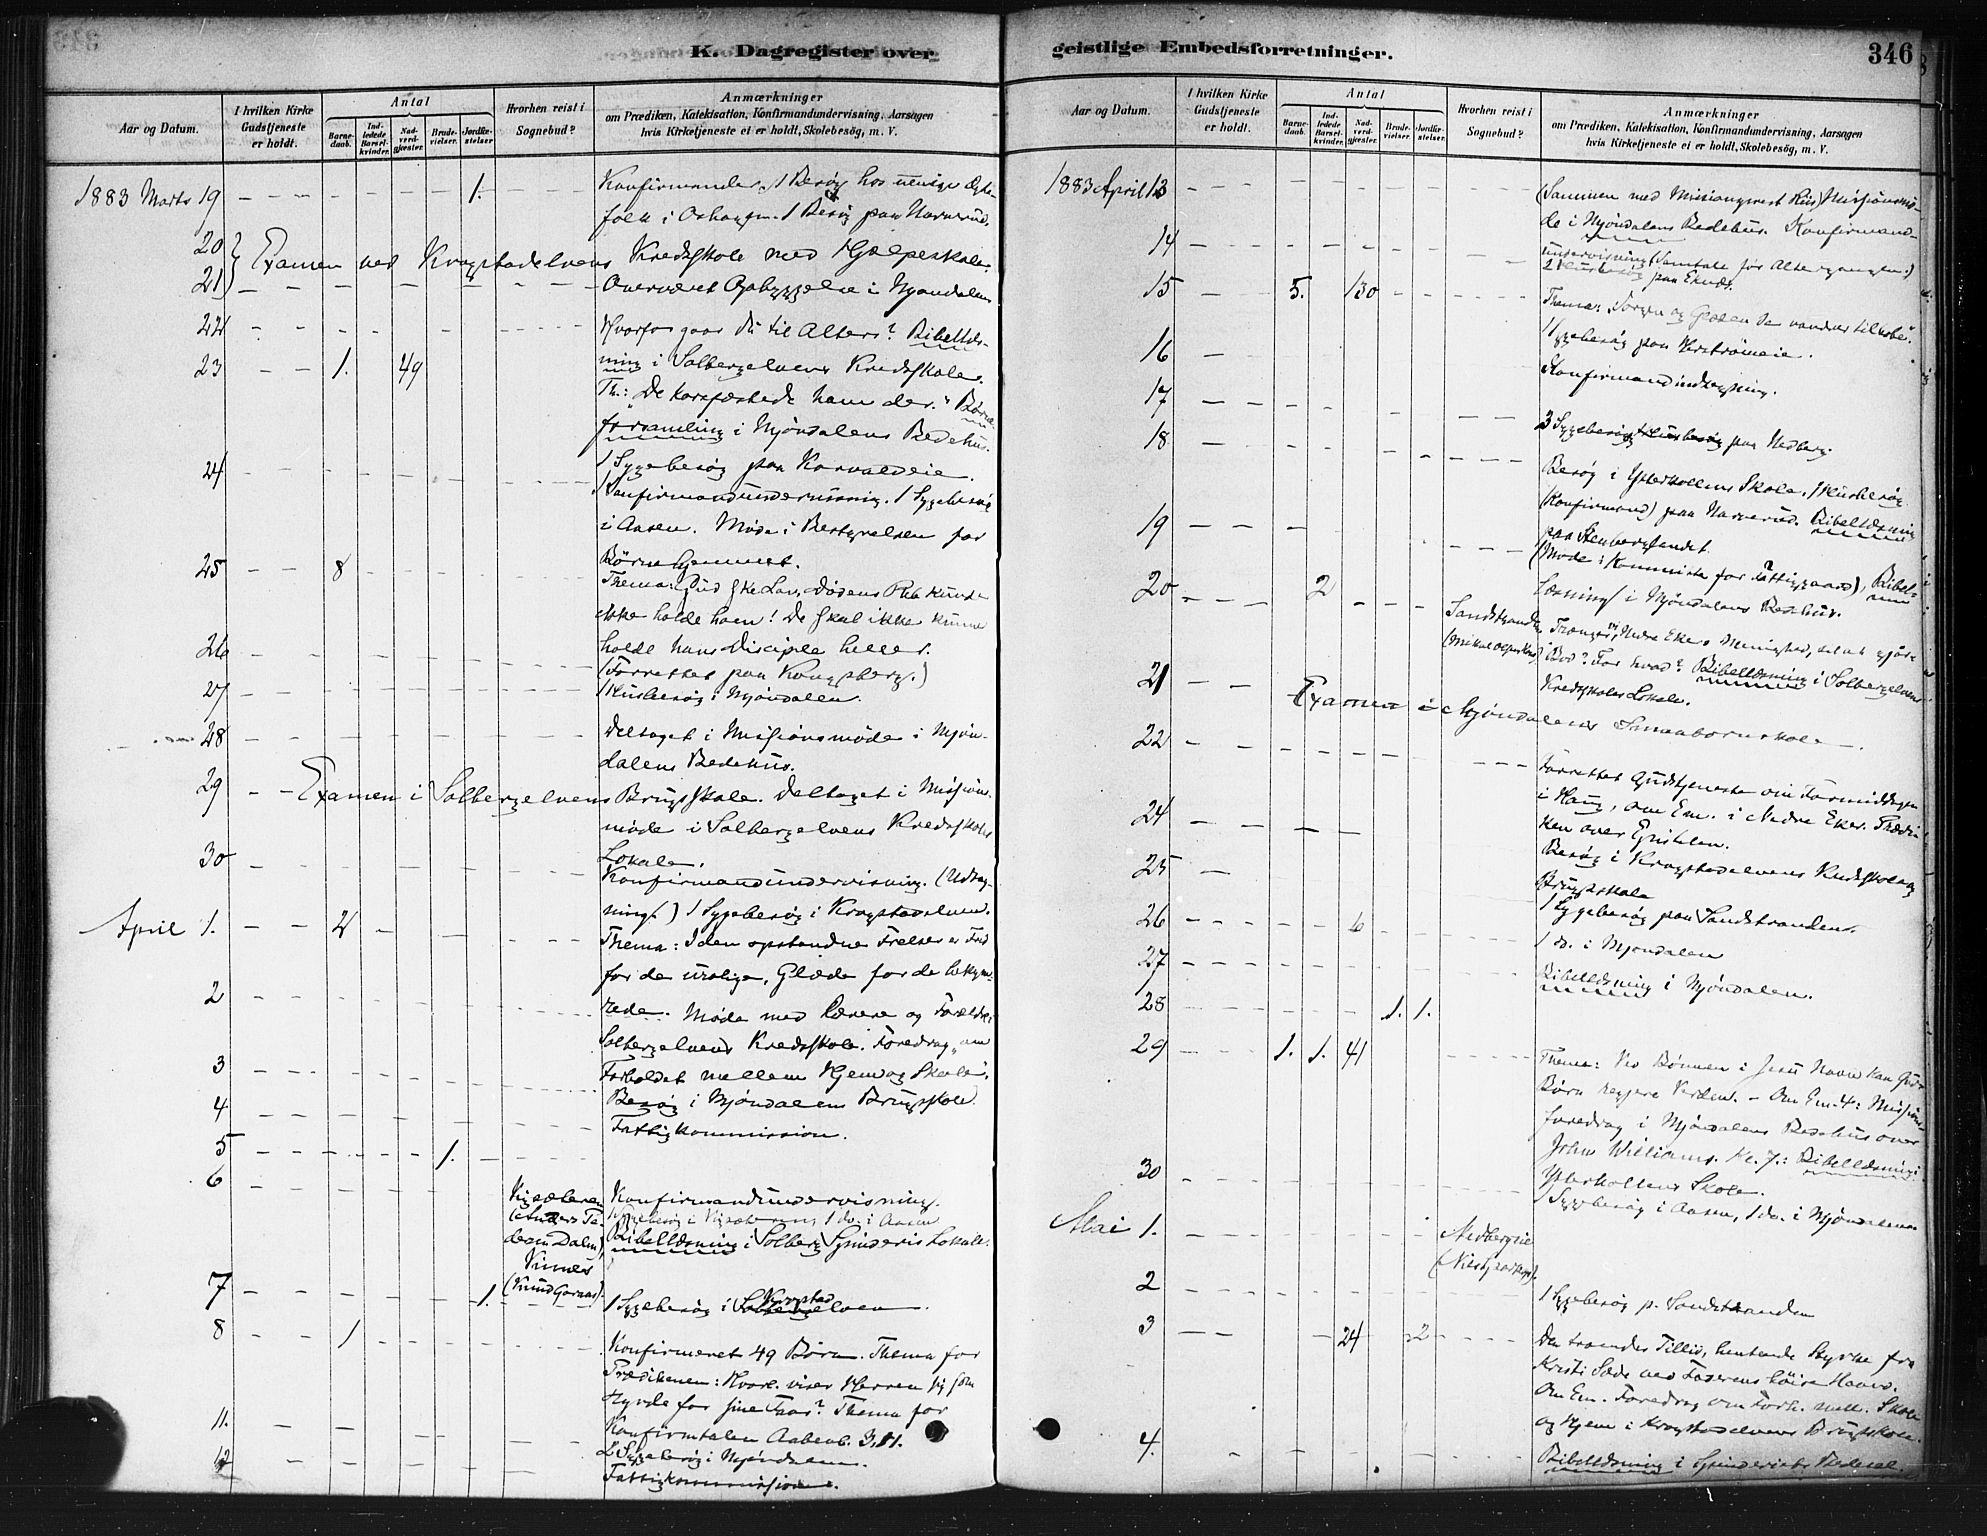 K. Dagregister over
Aar og Datum.
I hvilken Kirke Gudstjeneste er holdt.
Antal
Barnedaab.
Indledede Barselkvinder.
Nadverdgjester.
Brudevielser.
Jordfæstelser.
Hvorhen reist i Sognebud?
Anmærkninger
om Prædiken, Katekisation, Konfirmandundervisning, Aarsagen
hvis Kirketjeneste ei er holdt, Skolebesög, m. V.
1883 Marts 19 1. Konfirmander, 1 Besøg hos
1 Besøg paa Narverud.
20
21 Examen ved Krogstadelvens Kredsskole med Hjælpeskole.
Overværet Opbyggelse i Mjøndalen
22 Hvorfor gaar Du til Alters? Bibellæs-
23 1. 49 ning i Solbergelvens Kredsskole.
Th.: De korsfæstede ham der. Børne
forsamling i Mjøndalens Bedehus.
24 1 Sygebesøg paa
Konfirmandundervisning. 1 Sygebesøg
i Aasen. Møde i Bestyrelsen for
25 8 Børnehjemmet.
Thema: Gud ske Lov, Dødens Reb kunde
ikke holde ham! De skal ikke kunne
26 holde hans Disciple heller.
(Forrettet paa Kongsberg.)
27 1 Husbesøg i Mjøndalen.
28 Deltaget i Missionsmøde i Mjøn-
dalens Bedehus.
29 Examen i Solbergelvens Brugsskole. Deltaget i Missions-
møde i Solbergelvens Kredsskoles
30 Lokale.
Konfirmandundervisning. (Udtag-
April 1. 2 ning.) 1 Sygebesøg i Krogstadelven.
Thema: I den opstandne Frelser er Fred
for de urolige, Glæde for de bekym-
2 rede. Møde med Lærere og Forældre i
Solbergelvens Kredsskole. Foredrag "om
3 Forholdet mellem Hjem og Skole".
4 Besøg i Mjøndalens Brugsskole.
Fattigkommission.
5 1.
6 Konfirmandundervisning.
1 Sygebesøg i 1 do. i Aasen
Bibellæsning i Solberg Spinderis Lokale.
7 1. 1 Sygebesøg i Krogstadelven.
8 1 Konfirmeret 49 Børn. Thema for
Prædikenen: Hvorl. viser Herren sig som
Hyrde for sine Faar? Thema for
11. Konfirmtalen Aabenb. 3,11.
2 Sygebesøg i Mjøndalen.
12 Fattigkommission.
geistlige Embedsforretninger.
346
Aar og Datum.
I hvilken Kirke Gudstjeneste er holdt.
Antal
Barnedaab.
Indledede Barselkvinder.
Nadverdgjester.
Brudevielser.
Jordfæstelser.
Hvorhen reist i Sognebud?
Anmærkninger
om Prædiken, Katekisation, Konfirmandundervisning, Aarsagen
hvis Kirketjeneste ei er holdt, Skolebesög, m. V.
1883 April 13 (Sammen med Missionsprest Riis) Missionsmø-
de i Mjøndalens Bedehus. Konfirmand-
14 undervisning (Samtale før Altergangen.)
2 Husbesøg paa Eknes.
15 5. 130 Thema: Sorgen og Glæden de vandre tilhobe".
16 1 Sygebesøg paa
17 Konfirmandindtegning.
18 3 Sygebesøg paa Nedberg.
Besøg i Ytterkollens Skole. 1 Husbesøg
19 (Konfirmand) paa Narverud. Bibellæsning
paa Stenberglandet.
(Møde i Kommiste for Fattiggaard), Bibel-
20 2 læsning i Mjøndalens Bedehus.
Sandstranden Trænger Nedre Ekers Menighed, til at gjøre
Bod? For hvad? Bibellæsning i Solbergelvens
21 Kredsskoles Lokale.
Examen i Mjøndalens Smaabørnskole.
22 Forrettet Gudstjeneste om Formiddagen
24 i Haug, om Em. i Nedre Eker. Prædi-
ken over Epistelen.
25 Besøg i Krogstadelvens Kredsskole og
Brugsskole
26 6 1 Sygebesøg paa Sandstranden.
27 1 do. i Mjøndalen
28 1. 1. Bibellæsning i Mjøndalen.
29 1. 1. 41 Thema: Ved Bønnen i Jesu Navn kan Guds
Børn regjere Verden. - Om Em. 4: Missions-
foredrag i Mjøndalens Bedehus over
John Williams. Kl. 7.: Bibellæsning i
30 Ytterkollens Skole.
1 Sygebesøg i Aasen, 1 do. i Mjøndalen
Mai 1. Nedbergeie
2 1 Sygebesøg p. Sandstranden
3 24 2 Den troendes Tillid, hentende Styrke fra
Kristi Sæde ved Faderens høire Haand.
Om Em. Foredrag om Forh. mell. Skole
og Hjem i Krogstadelvens Brugsskole.
4. Bibellæsning i Spinderiets